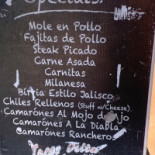 Specials:
Mole en Pollo
Fajitas de Pollo
Steak Picado
Carne Asada
Carnitas
Milanesa
Birria Estilo Jalisco
Chiles Rellenos (Stuff w/Cheese)
Camarónes Al Mojo de Ajo
Camarónes A La Diabla
Camarónes Ranchero
Tacos